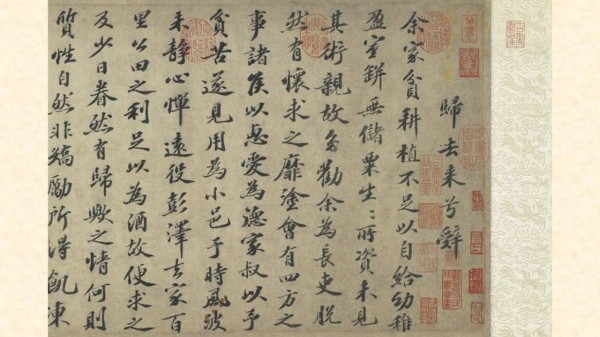 歸去来兮辭
余家貧耕植不足以自給幼稚
盈室缾無儲粟生〻所資未見
其術親故多勸余為長吏脫
然有懷求之靡塗會有四方之
事諸侯以惠愛為德家叔以予
貧苦遂見用為小邑于時風波
未静心憚遠役彭澤去家百
里公田之利足以為酒故便求之
及少日眷然有歸歟之情何則
質性自然非矯勵所得飢凍